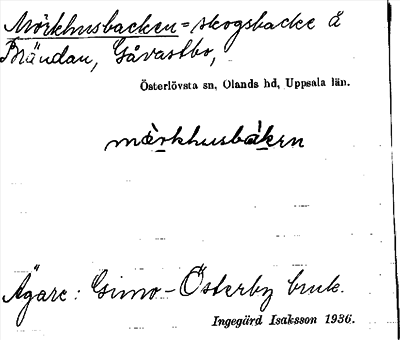 Mörkhusbacken = skogsbacke å
Brändan, Gåvastbo,
Österlövsta sn, Olands hd, Uppsala län.
mö̀rkhusbàken
Ägare: Gimo-Österby bruk.
Ingegärd Isaksson 1936.